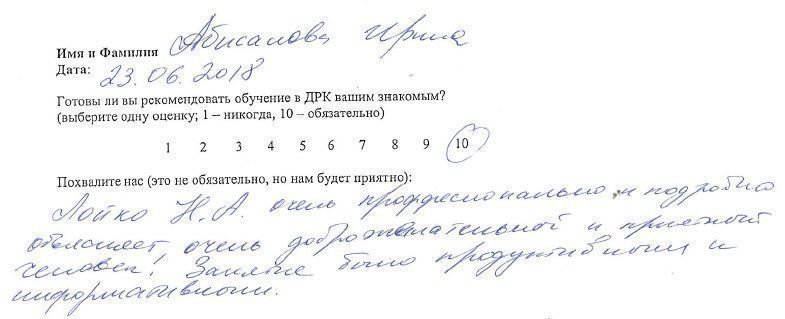 Имя и Фамилия Абисалова Ирина
Дата: 23.06.2018
Готовы ли вы рекомендовать обучение в ДРК вашим знакомым?
(выберите одну оценку; 1 – никогда, 10 – обязательно)
1 2 3 4 5 6 7 8 9 10
Похвалите нас (это не обязательно, но нам будет приятно):
Лойко Н.А. очень проффесионально и подробно
объясняет, очень доброжелательной и приятный
человек! Занятие было продуктивным и
информативным.